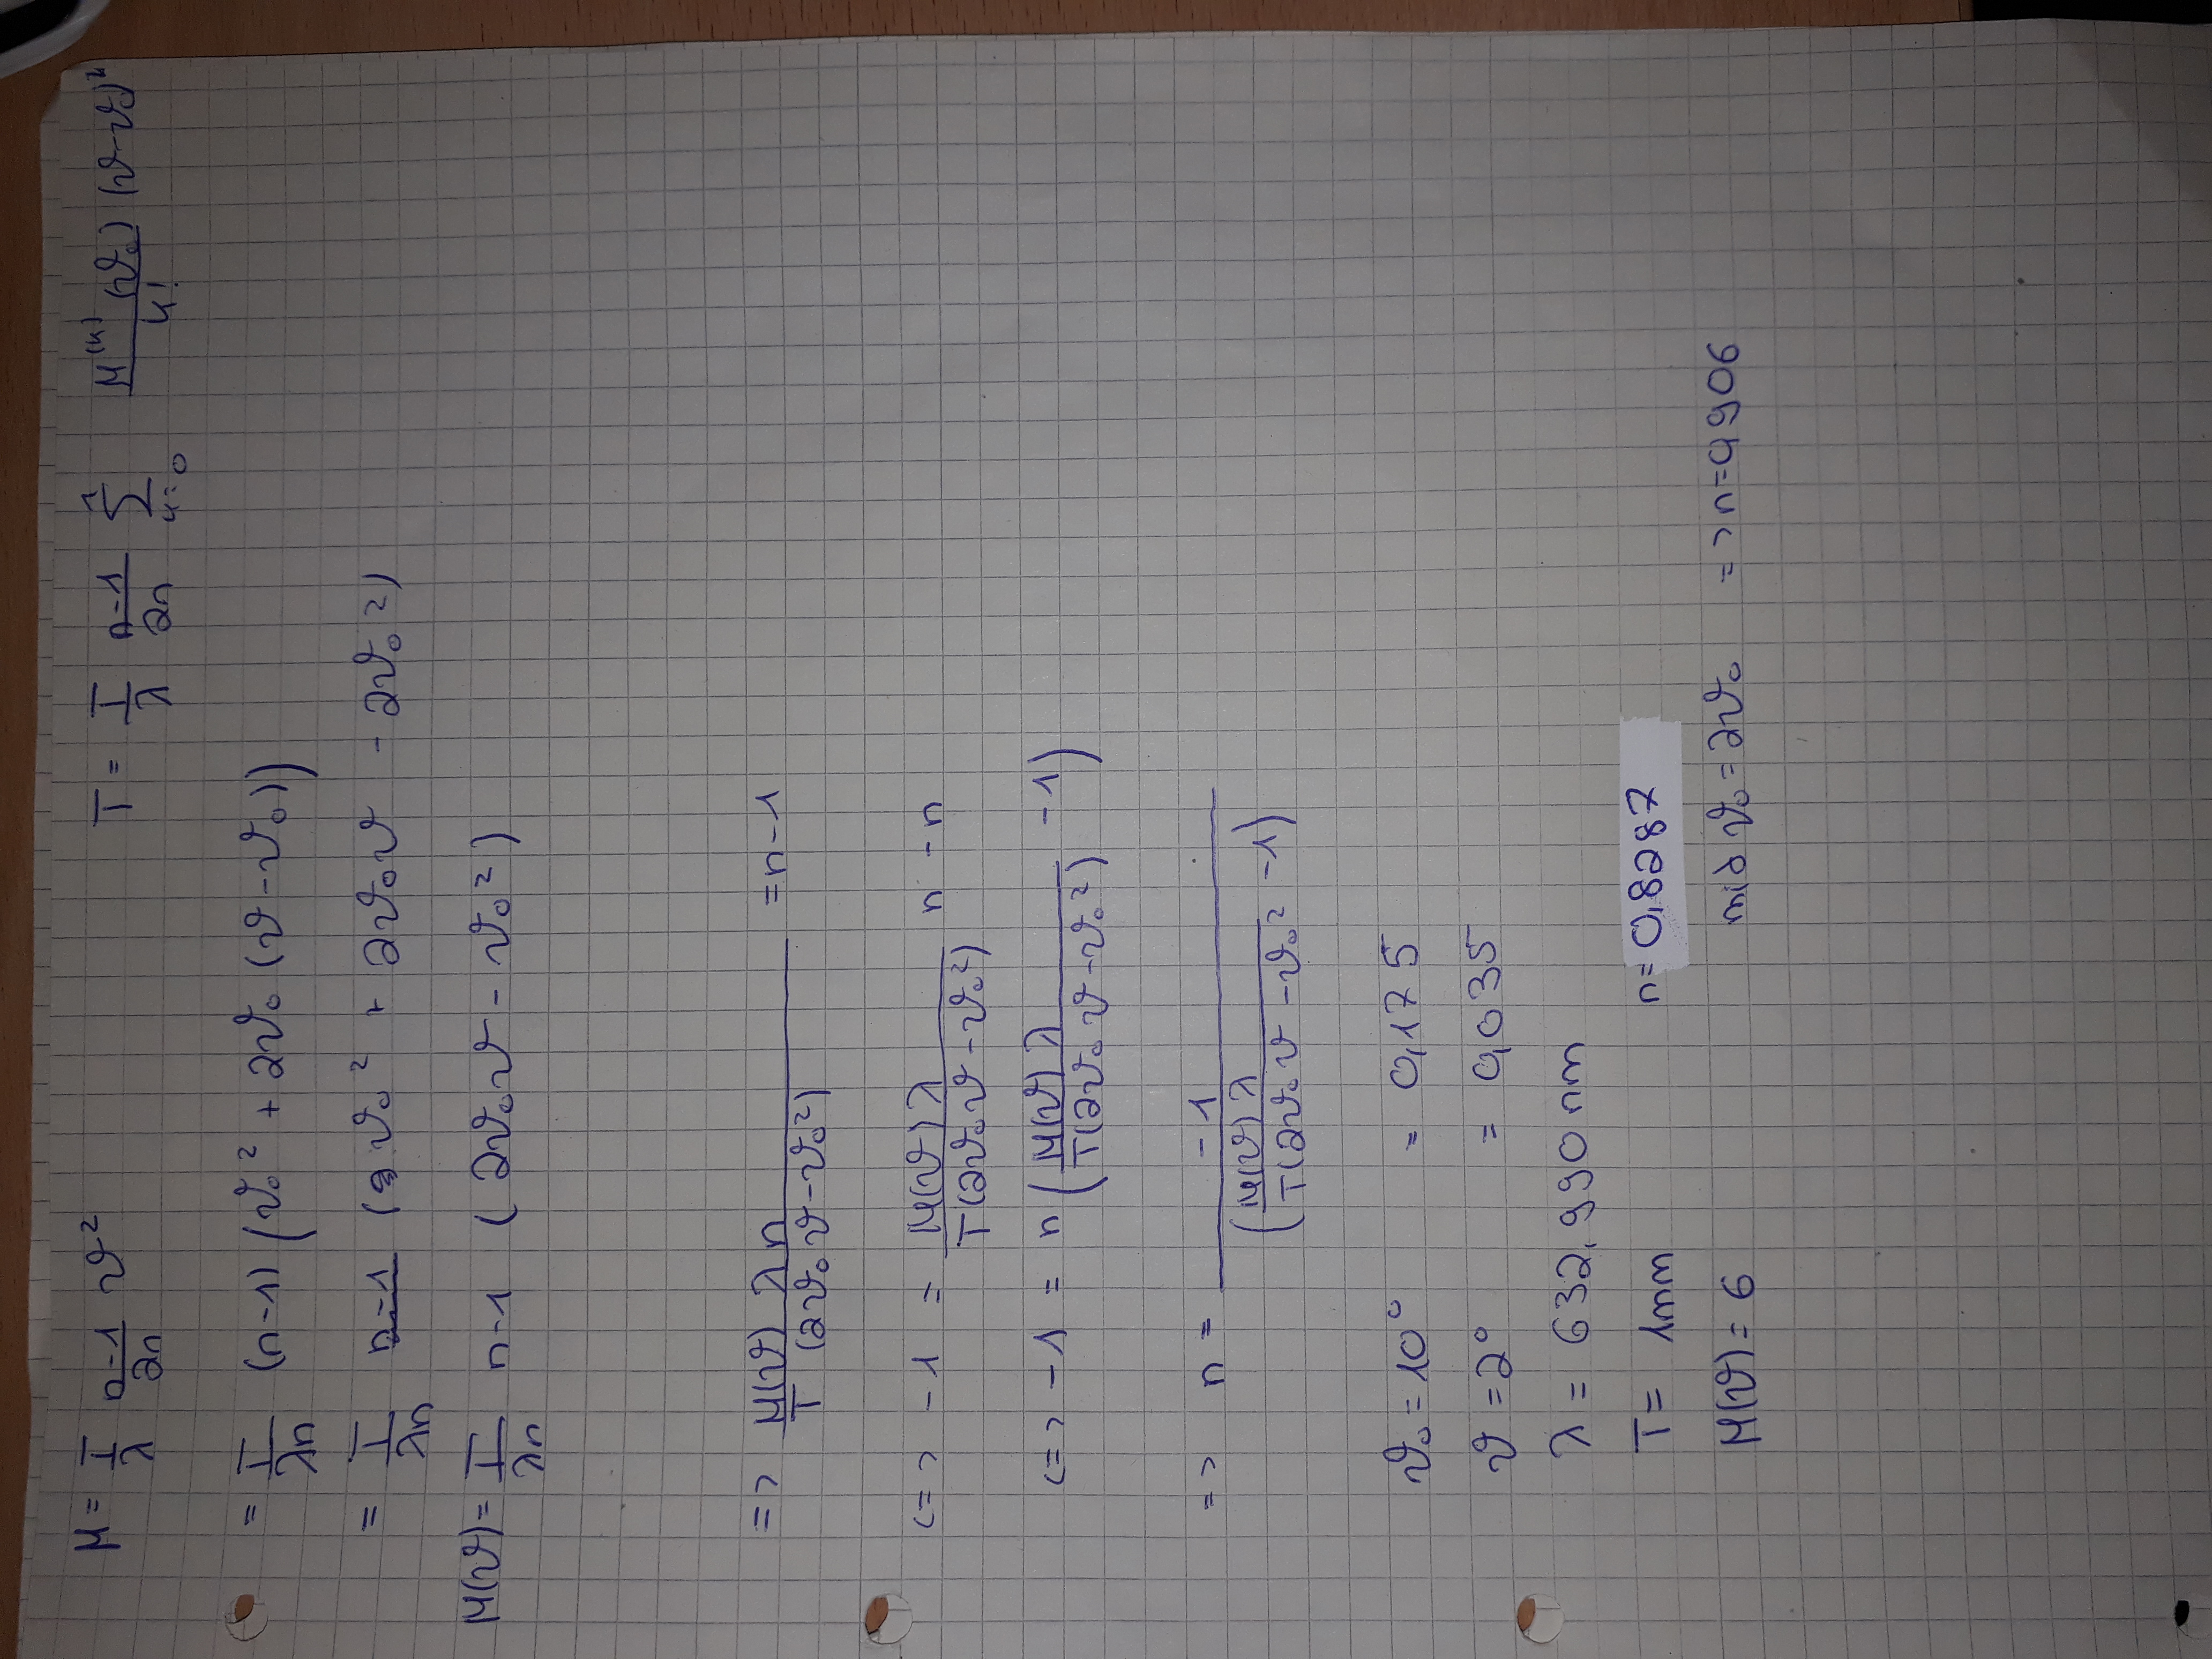 M = T/λ (n-1)/2n ϑ²
T = T/λ (n-1)/2n ∑_{k=0}^{1} M^{(k)}(ϑ₀)/k! (ϑ-ϑ₀)^k
= T/λn (n-1) (ϑ₀² + 2ϑ₀ (ϑ-ϑ₀))
= T/λn n-1 (ϑ₀² + 2ϑ₀ϑ - 2ϑ₀²)
M(ϑ) = T/λn n-1 (2ϑ₀ϑ - ϑ₀²)
=> M(ϑ) λn / T (2ϑ₀ϑ-ϑ₀²) = n-1
<=> -1 = M(ϑ)λ / T(2ϑ₀ϑ-ϑ₀²) n - n
<=> -1 = n (M(ϑ)λ / T(2ϑ₀ϑ-ϑ₀²) -1)
=> n = -1 / (M(ϑ)λ / T(2ϑ₀ϑ-ϑ₀² -1)
ϑ₀ = 10° = 0,175
ϑ = 2° = 0,035
λ = 632,990 nm
T = 1mm n = 0,8287
M(ϑ) = 6 mid ϑ₀ = 2ϑ₀ => n = 0,906